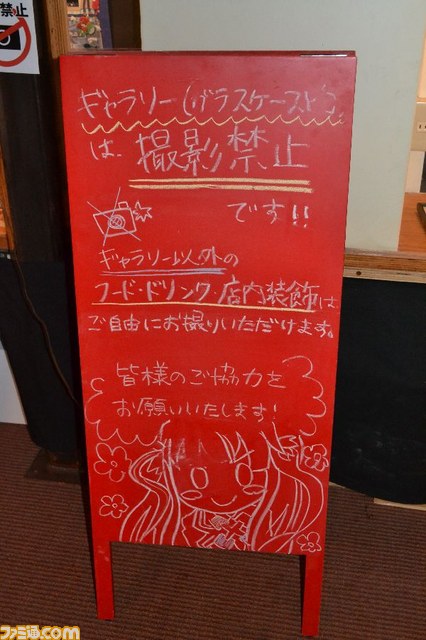 禁止
ギャラリー(ガラスケース)
は 撮影禁止
です!!
ギャラリー以外の
フード・ドリンク 店内装飾は
ご自由にお撮りいただけます。
皆様のご協力を
お願いいたします!
ファミ通.com